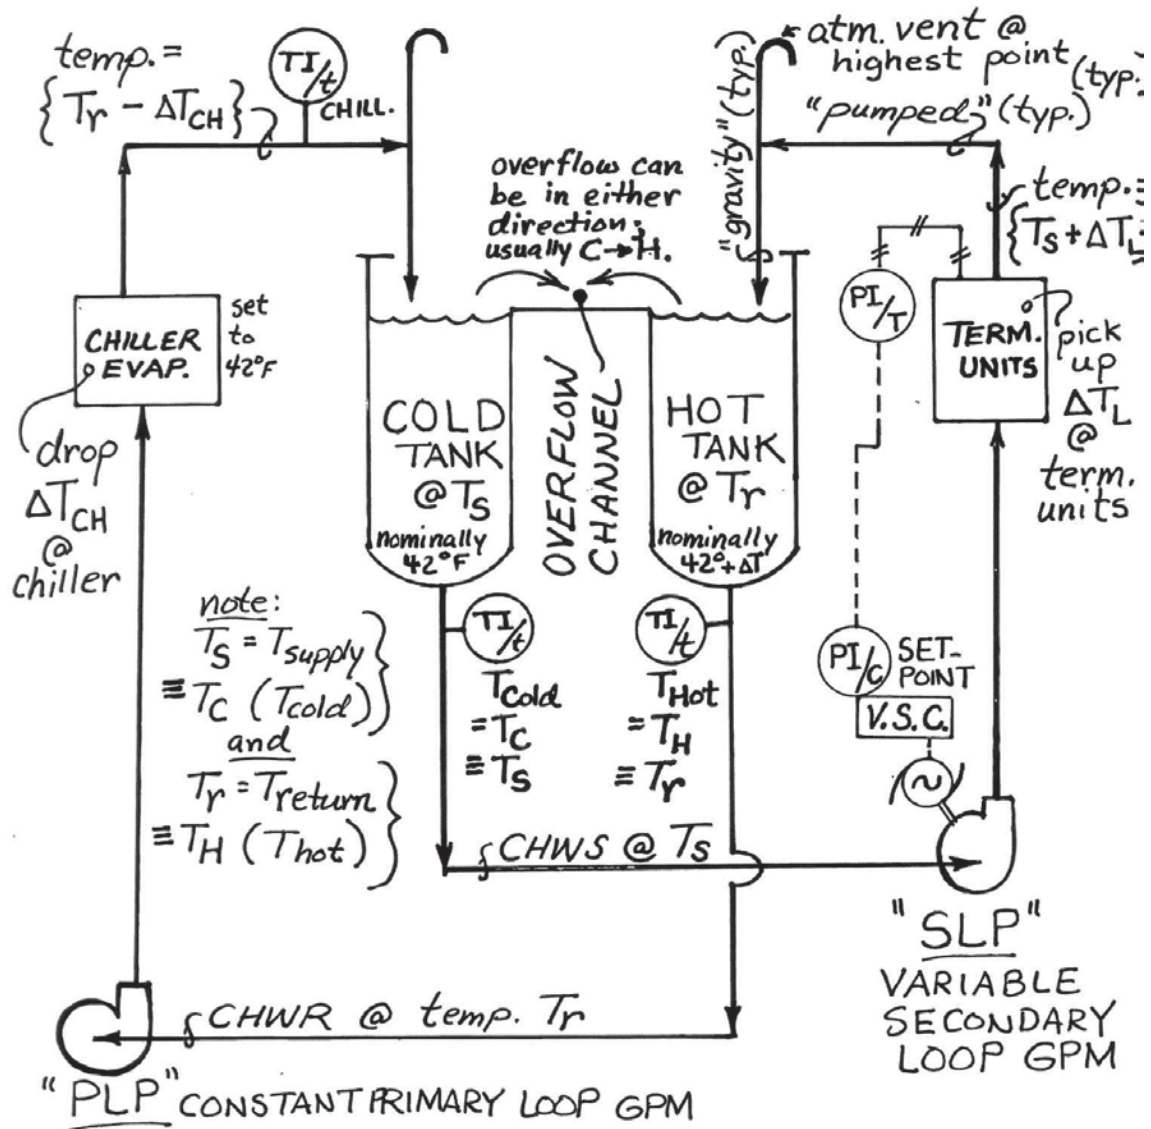 temp. =
{Tr − ΔTCH}
TI/t
CHILL.
atm. vent @
highest point
(typ.)
"gravity" (typ.)
"pumped" (typ.)
overflow can
be in either
direction;
usually C→H.
temp. =
{Ts + ΔTL}
CHILLER
EVAP.
set
to
42°F
drop
ΔTCH
@
chiller
COLD
TANK
@ Ts
nominally
42°F
OVERFLOW
CHANNEL
HOT
TANK
@ Tr
nominally
42°+ΔT
PI/T
TERM.
UNITS
pick
up
ΔTL
@
term.
units
note:
Ts = Tsupply
≡ Tc (Tcold)
and
Tr = Treturn
≡ TH (Thot)
TI/t
TCold
= Tc
≡ Ts
TI/t
THot
= TH
≡ Tr
PI/C
SET-
POINT
V.S.C.
~
CHWS @ Ts
"SLP"
VARIABLE
SECONDARY
LOOP GPM
CHWR @ temp. Tr
"PLP" CONSTANT PRIMARY LOOP GPM